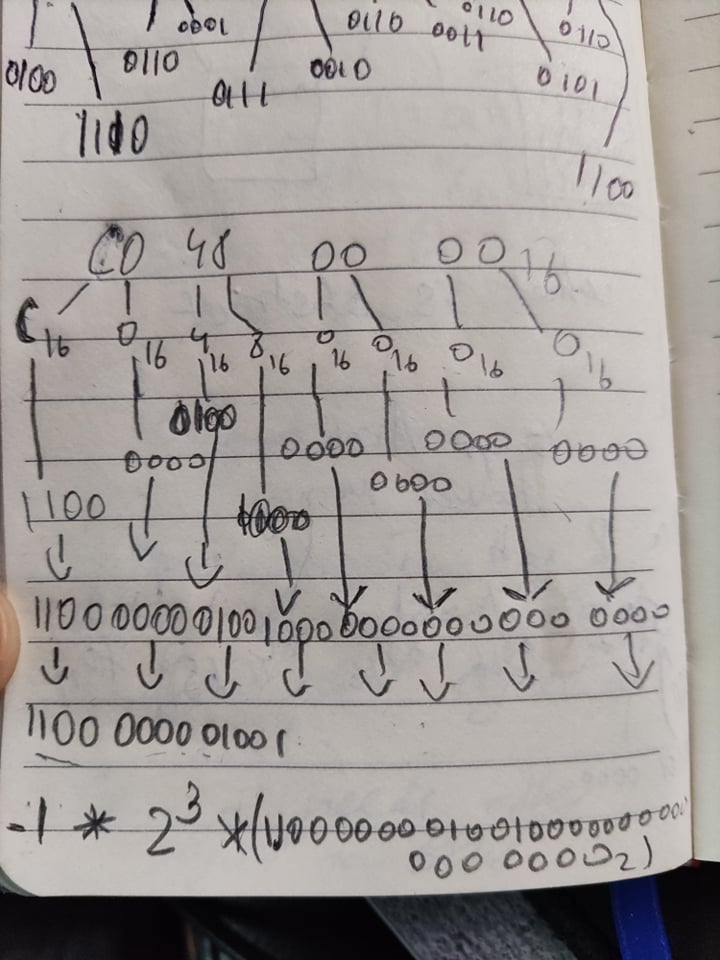 0001 0110 0110 0110
0100 0110 0111 0010 0011 0101
1110 1100
C0 48 00 00 16
C16 016 416 816 016 016 016 016
0100
0000 0000 0000 0000
0000
1100 1000
1100 0000 0100 1000 0000 0000 000 0000
1100 0000 01001
-1 * 2^3 * (11000000001001000000000000
000 00002)